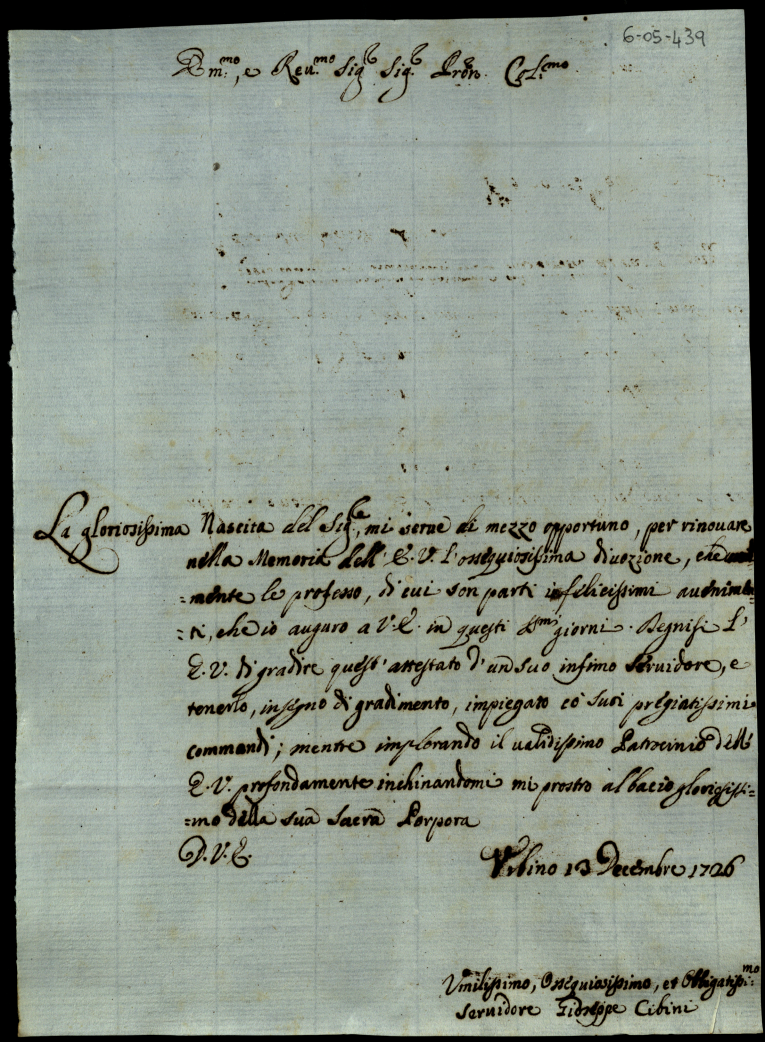 6-05-439
Em.mo, e Reu.mo Sig.r Sig.r Pron. Col.mo
La gloriosissima Nascita del Sig.re, mi serue di mezzo opportuno, per rinouare
nella Memoria dell' E. V. l'ossequiosissima diuozione, che
=mente le professo, di cui son parti i felicissimi auenimen=
=ti, che io auguro a V. E. in questi S.mi giorni. Degnisi l'
E. V. di gradire quest' attestato d'un suo infimo seruidore, e
tenerlo, in segno di gradimento, impiegato co' suoi pregiatissimi
commandi; mentre implorando il ualidissimo Patrocinio dell'
E. V. profondamente inchinandomi mi prostro al bacio gloriosissi=
=mo della sua Sacra Porpora
D. V. E.
Vrbino 13 Decembre 1726
Vmilissimo, Ossequiosissimo, et Obligatissi.mo
Seruidore Gioseppe Cibini